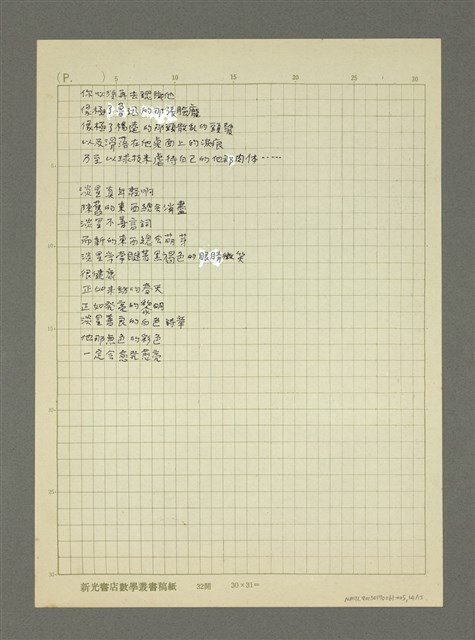 (P.      )
5 10 15 20 25 30
你必須再去認識他
像極了魯迅的那張臉龐
像極了楊逵的那頭散亂的頭髮
以及滑落在他桌面上的淚痕
乃至以球技來虐待自己的他那肉体……
淡星夏年輕啊
陳舊的東西總會消盡
淡星不善言詞
而新的東西總會萌芽
淡星常常睜著黑褐色的眼睛微笑
很健康
正如來臨的春天
正如發亮的黎明
淡星善良的白色詩華
他那無色的彩色
一定會愈发愈亮
新光書店數學叢書稿紙 32開 20×31㎜